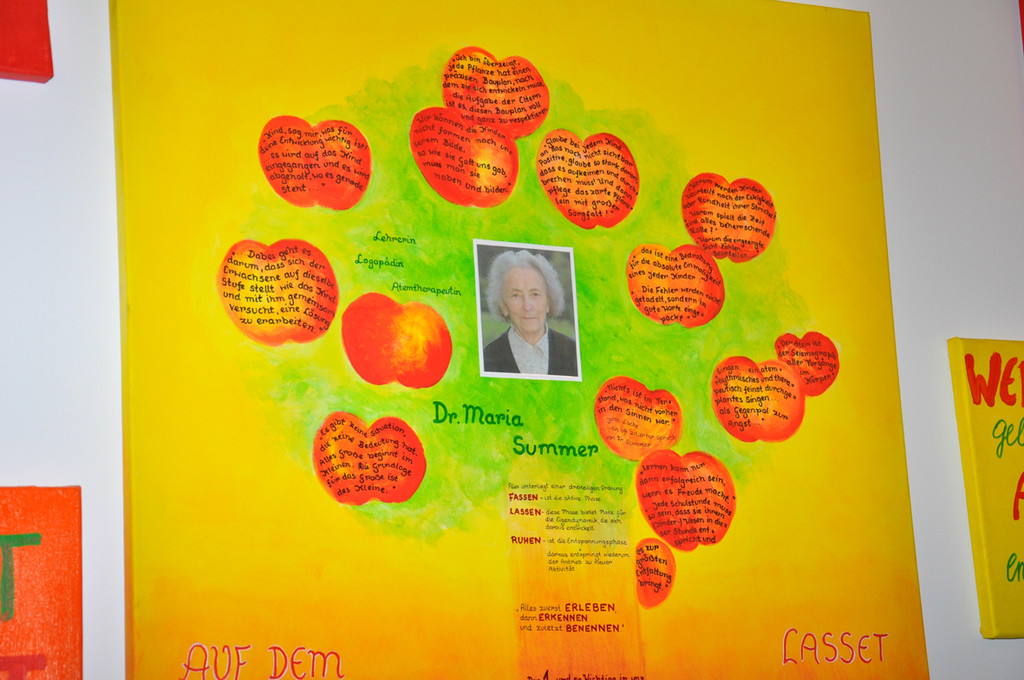 "Ich bin überzeugt,
jede Pflanze hat einen
präzisen Bauplan, nach
dem sie sich entwickeln muss
... die Aufgabe der Eltern
ist es, diesen Bauplan voll
und ganz zu respektieren
"Wir können die Kinder
nicht formen nach un-
serem Bilde.
so wie sie Gott uns gab,
muss man sie
haben und bilden."
"Kind, sag mir, was für
deine Entwicklung wichtig ist!
es wird auf das Kind
eingegangen und es wird
abgeholt, wo es gerade
steht ..."
"Glaube bei jedem Kind
an das noch nicht sichtbare
Positive, glaube so stark daran,
dass es aufkeimen und durch-
brechen muss! Und dann
pflege das zarte Pflänz-
lein mit großer
Sorgfalt!"
"Warum werden Kinder
beurteilt nach der Eckigkeit
oder Rundheit ihrer Striche?
Warum spielt die Zeit
eine alles beherrschende
Rolle?"
"Warum die eingeengte
Sicht
das ist eine Bedrohung
für die absolute Einmaligkeit
eines jeden Kindes
"Die Fehler werden nicht
getadelt, sondern in
gute Worte einge-
packt."
"... Dabei geht es
darum, dass sich der
Erwachsene auf dieselbe
Stufe stellt wie das Kind
und mit ihm gemeinsam
versucht, eine Lösung
zu erarbeiten."
Lehrerin
Logopädin
Atemtherapeutin
"Der Atem ist
der Seismograph
aller Vorgänge
im
Körper."
Singen ein atem-
rhythmisches und thera-
peutisch feinst durchge-
plantes Singen...
als Gegenpol zur
Angst
"Nichts ist im Ver-
stand, was nicht vorher
in den Sinnen war."
John Locke
Dr. Maria
Summer
"Es gibt keine Situation,
die keine Bedeutung hat.
Alles Große beginnt im
Kleinen. Die Grundlage
für das Große ist
des Kleine."
"Lernen kann nur
dann erfolgreich sein,
wenn es Freude macht."
"Jede Schulstunde muss
so sein, dass sie ihren
Kinder-) Wesen in die-
ser Stunde ent-
spricht und
es zur
größten
Entfaltung
bringt."
Alles unterliegt einer dreiteiligen Ordnung
FASSEN - ist die aktive Phase
LASSEN - diese Phase bietet Platz für
die Eigendynamik, die sich
daraus entwickelt
RUHEN - ist die Entspannungsphase
daraus entspringt wiederum
der Antrieb zu neuer
Aktivität
"Alles zuerst ERLEBEN,
dann ERKENNEN
und zuletzt BENENNEN."
AUF DEM
LASSET
WE
gel
A
en
T